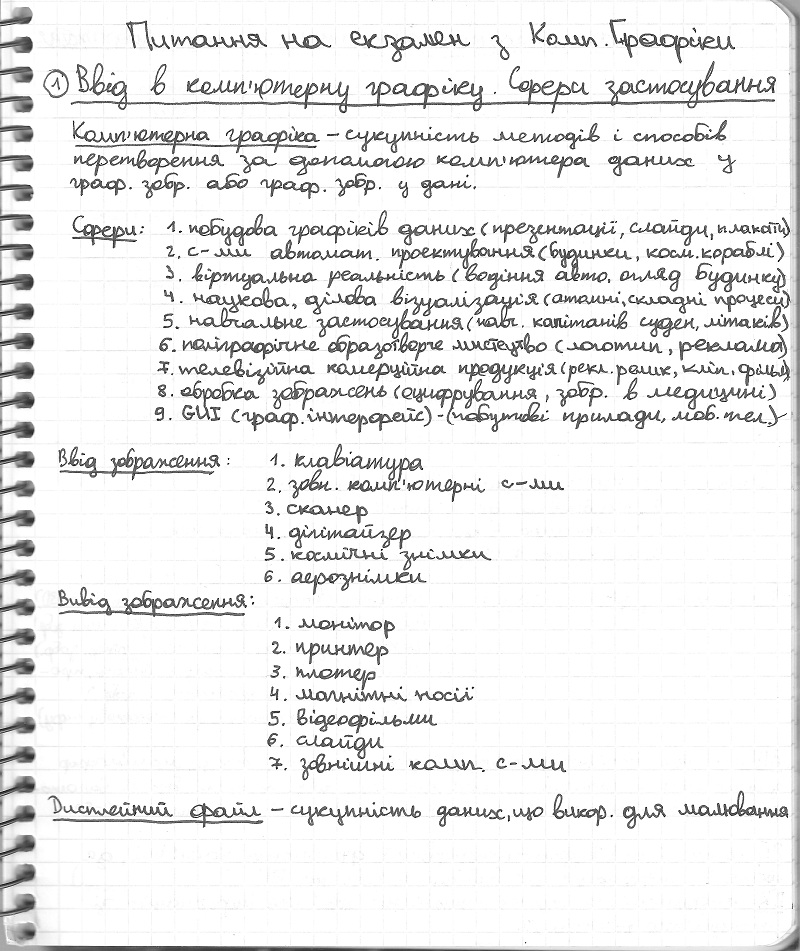 Питання на екзамен з Комп. Графіки
1 Ввід в комп'ютерну графіку. Сфери застосування
Комп'ютерна графіка – сукупність методів і способів
перетворення за допомогою комп'ютера даних у
граф. зобр. або граф. зобр. у дані.
Сфери: 1. побудова графіків даних (презентації, слайди, плакати)
2. с-ми автомат. проектування (будинки, косм. кораблі)
3. віртуальна реальність (водіння авто, огляд будинку)
4. наукова, ділова візуалізація (атомні, складні процеси)
5. навчальне застосування (навч. капітанів суден, літаків)
6. поліграфічне образотворче мистецтво (логотип, реклама)
7. телевізійна комерційна продукція (рекл. ролик, кліп, фільм)
8. обробка зображень (оцифрування, зобр. в медицині)
9. GUI (граф. інтерфейс) - (побутові прилади, моб. тел.)
Ввід зображення: 1. клавіатура
2. зовн. комп'ютерні с-ми
3. сканер
4. дігітайзер
5. космічні знімки
6. аерознімки
Вивід зображення:
1. монітор
2. принтер
3. плотер
4. магнітні носії
5. відеофільми
6. слайди
7. зовнішні комп. с-ми
Дисплейний файл – сукупність даних, що викор. для малювання